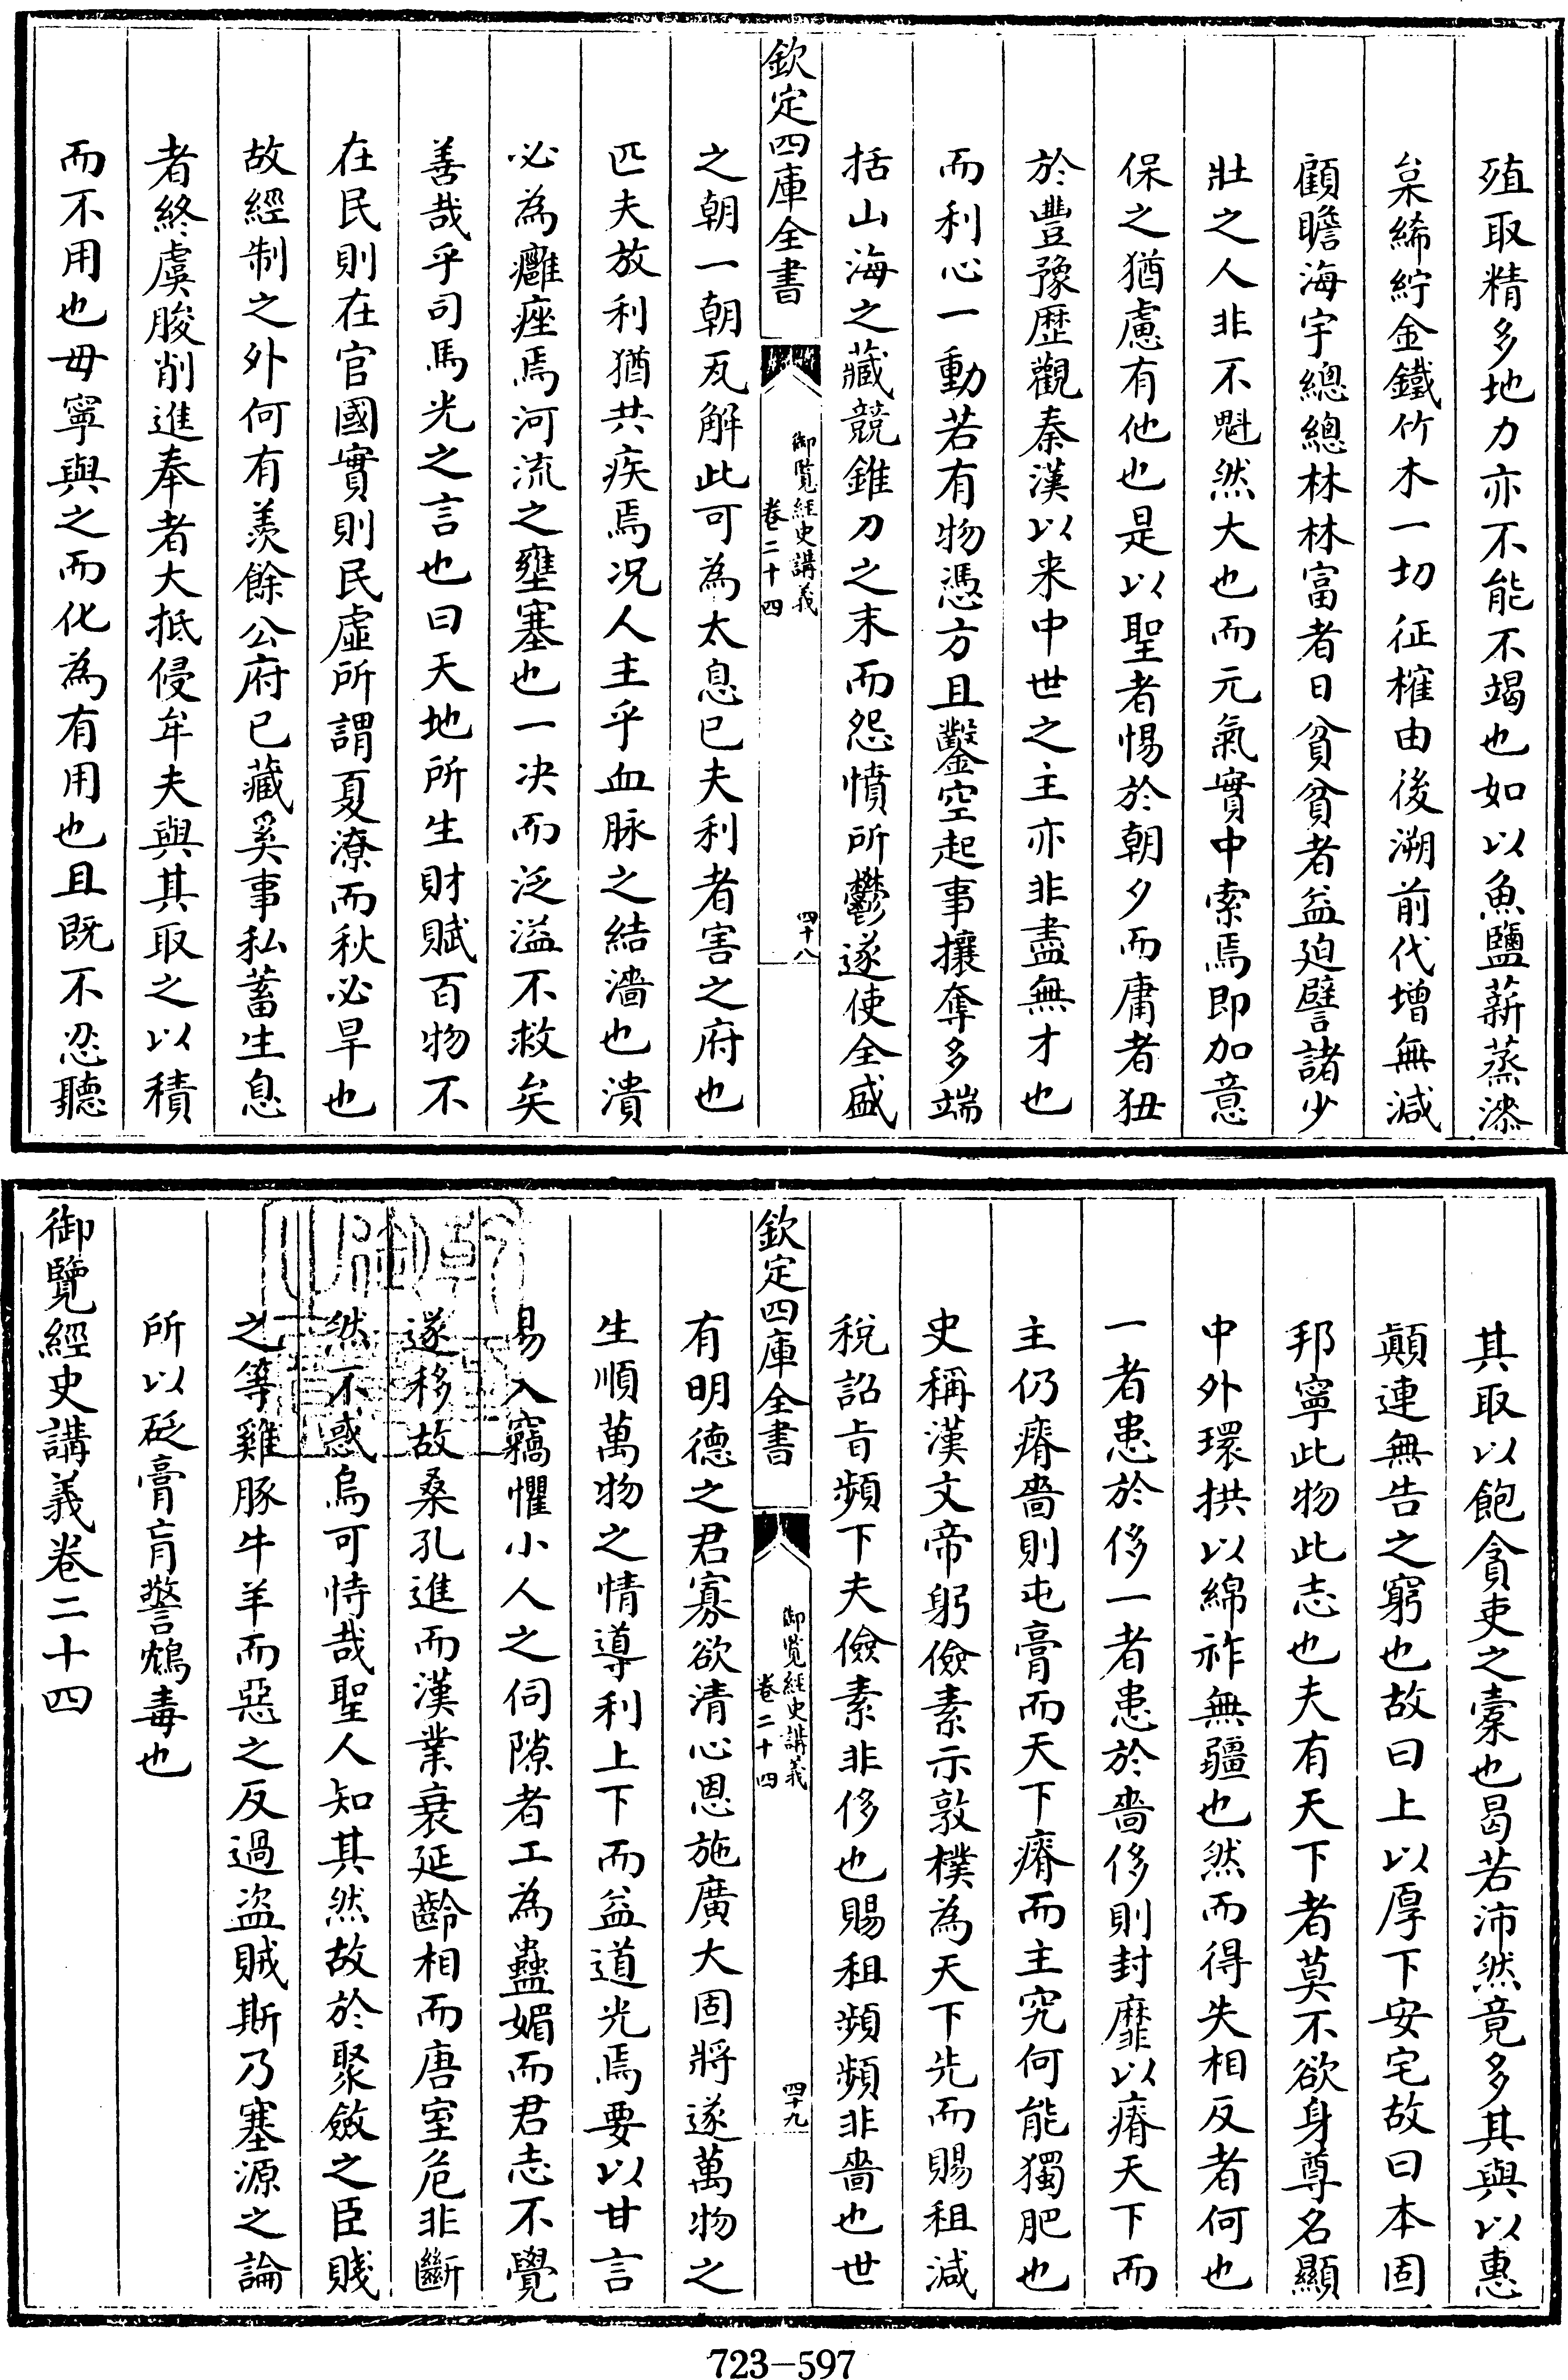 殖取精多地力亦不能不竭也如以魚鹽薪蒸漆
枲絺紵金鐵竹木一切征榷由後溯前代增無減
顧瞻海宇總總林林富者日貧貧者益廹譬諸少
壯之人非不魁然大也而元氣實中索焉即加意
保之猶慮有他也是以聖者惕於朝夕而庸者狃
於豐豫歴觀秦漢以來中世之主亦非盡無才也
而利心一動若有物憑方且鑿空起事攘奪多端
括山海之藏競錐刀之末而怨憤所鬱遂使全盛
欽定四庫全書
御覧經史講義
卷二十四
四十八
之朝一朝瓦解此可為太息已夫利者害之府也
匹夫放利猶共疾焉况人主乎血脉之結濇也潰
必為癰痤焉河流之壅塞也一决而泛溢不救矣
善哉乎司馬光之言也曰天地所生財賦百物不
在民則在官國實則民虛所謂夏潦而秋必旱也
故經制之外何有羨餘公府已藏奚事私蓄生息
者終虞朘削進奉者大抵侵牟夫與其取之以積
而不用也毋寧與之而化為有用也且既不忍聽
其取以飽貪吏之橐也曷若沛然竟多其與以惠
顛連無告之窮也故曰上以厚下安宅故曰本固
邦寧此物此志也夫有天下者莫不欲身尊名顯
中外環拱以綿祚無疆也然而得失相反者何也
一者患於侈一者患於嗇侈則封靡以瘠天下而
主仍瘠嗇則屯膏而天下瘠而主究何能獨肥也
史稱漢文帝躬儉素示敦樸為天下先而賜租減
稅詔旨頻下夫儉素非侈也賜租頻頻非嗇也世
欽定四庫全書
御覧經史講義
卷二十四
四十九
有明德之君寡欲清心恩施廣大固將遂萬物之
生順萬物之情導利上下而益道光焉要以甘言
易入竊懼小人之伺隙者工為蠱媚而君志不覺
遂移故桑孔進而漢業衰延齡相而唐室危非斷
然不惑烏可恃哉聖人知其然故於聚斂之臣賤
之等雞豚牛羊而惡之反過盜賊斯乃塞源之論
所以砭膏肓警鴆毒也
御覽經史講義卷二十四
723-597